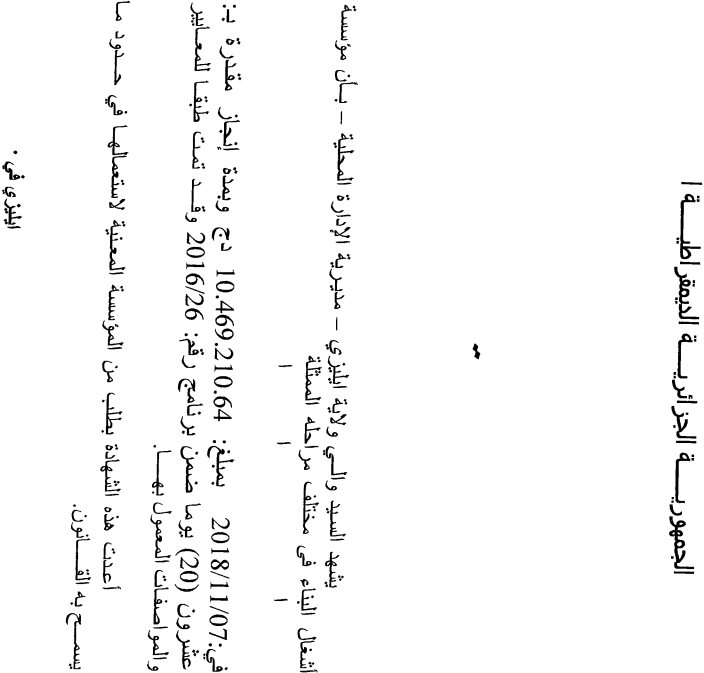 الجمهوريـــة الجزائريـــة الديمقراطيـــة ا
يشهد السيد والـي ولاية ايليزي – مديرية الإدارة المحلية – بـأن مؤسسة
أشغال البناء في مختلف مراحله الممثلة
في:2018/11/07 بمبلغ: 10.469.210.64 دج وبمدة إنجاز مقدرة بـ:
عشرون (20) يوما ضمن برنامج رقم: 2016/26 وقـد تمت طبقـا للمعـايير
والمواصفـات المعمول بهـا.
أعدت هذه الشهادة بطلب من المؤسسة المعنية لاستعمالهـا في حـدود مـا
يسمـــح به القـــانون.
ايليزي في .